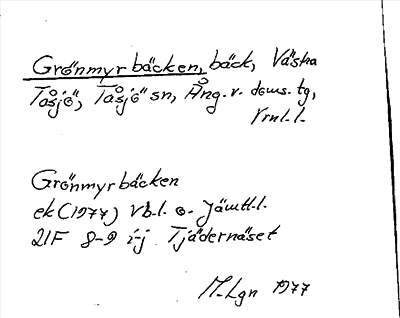 Grönmyrbäcken, bäck, Västra
Tåsjö, Tåsjö sn, Ång. v. doms. tg,
Vrnl.l.
Grönmyrbäcken
ek (1977) Vb.l. o. Jämtl.l.
21F 8-9 i-j Tjädernäset
M. Lgn 1977